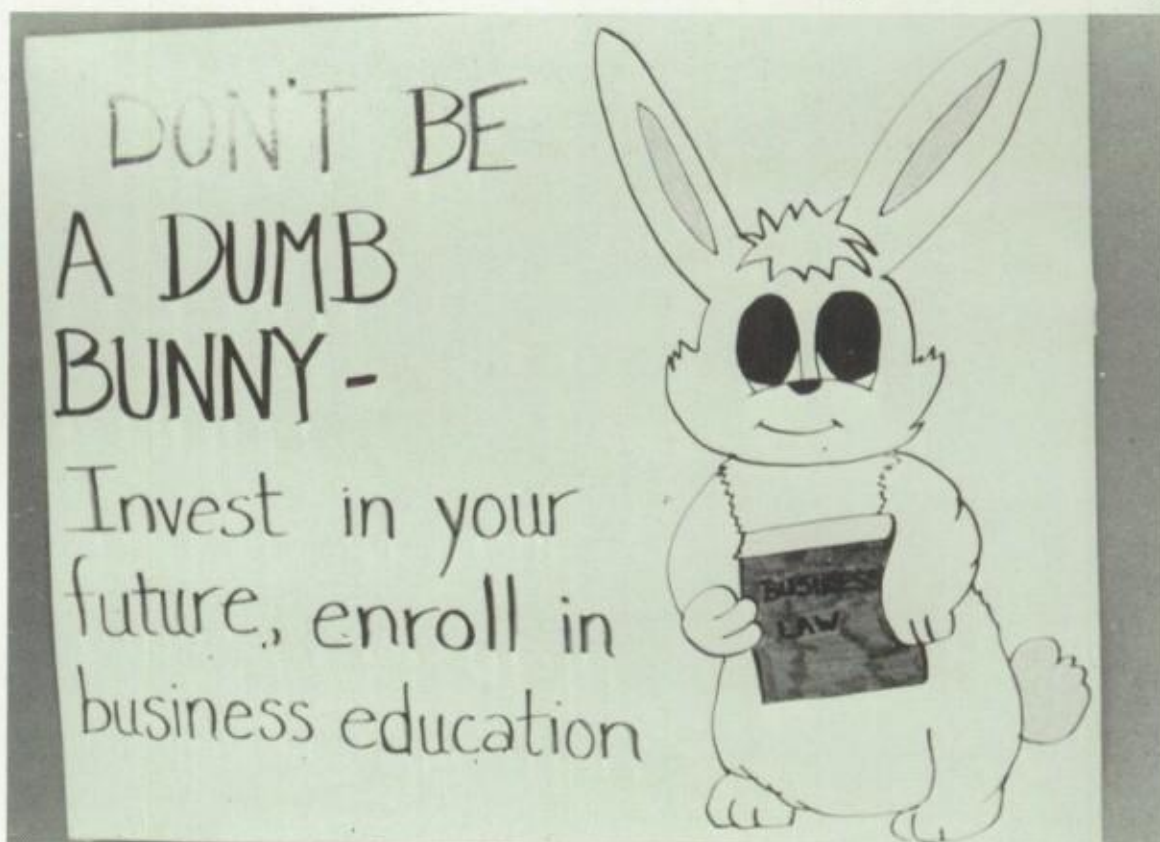 DON'T BE
A DUMB
BUNNY-
Invest in your
future, enroll in
business education
BUSINESS
LAW